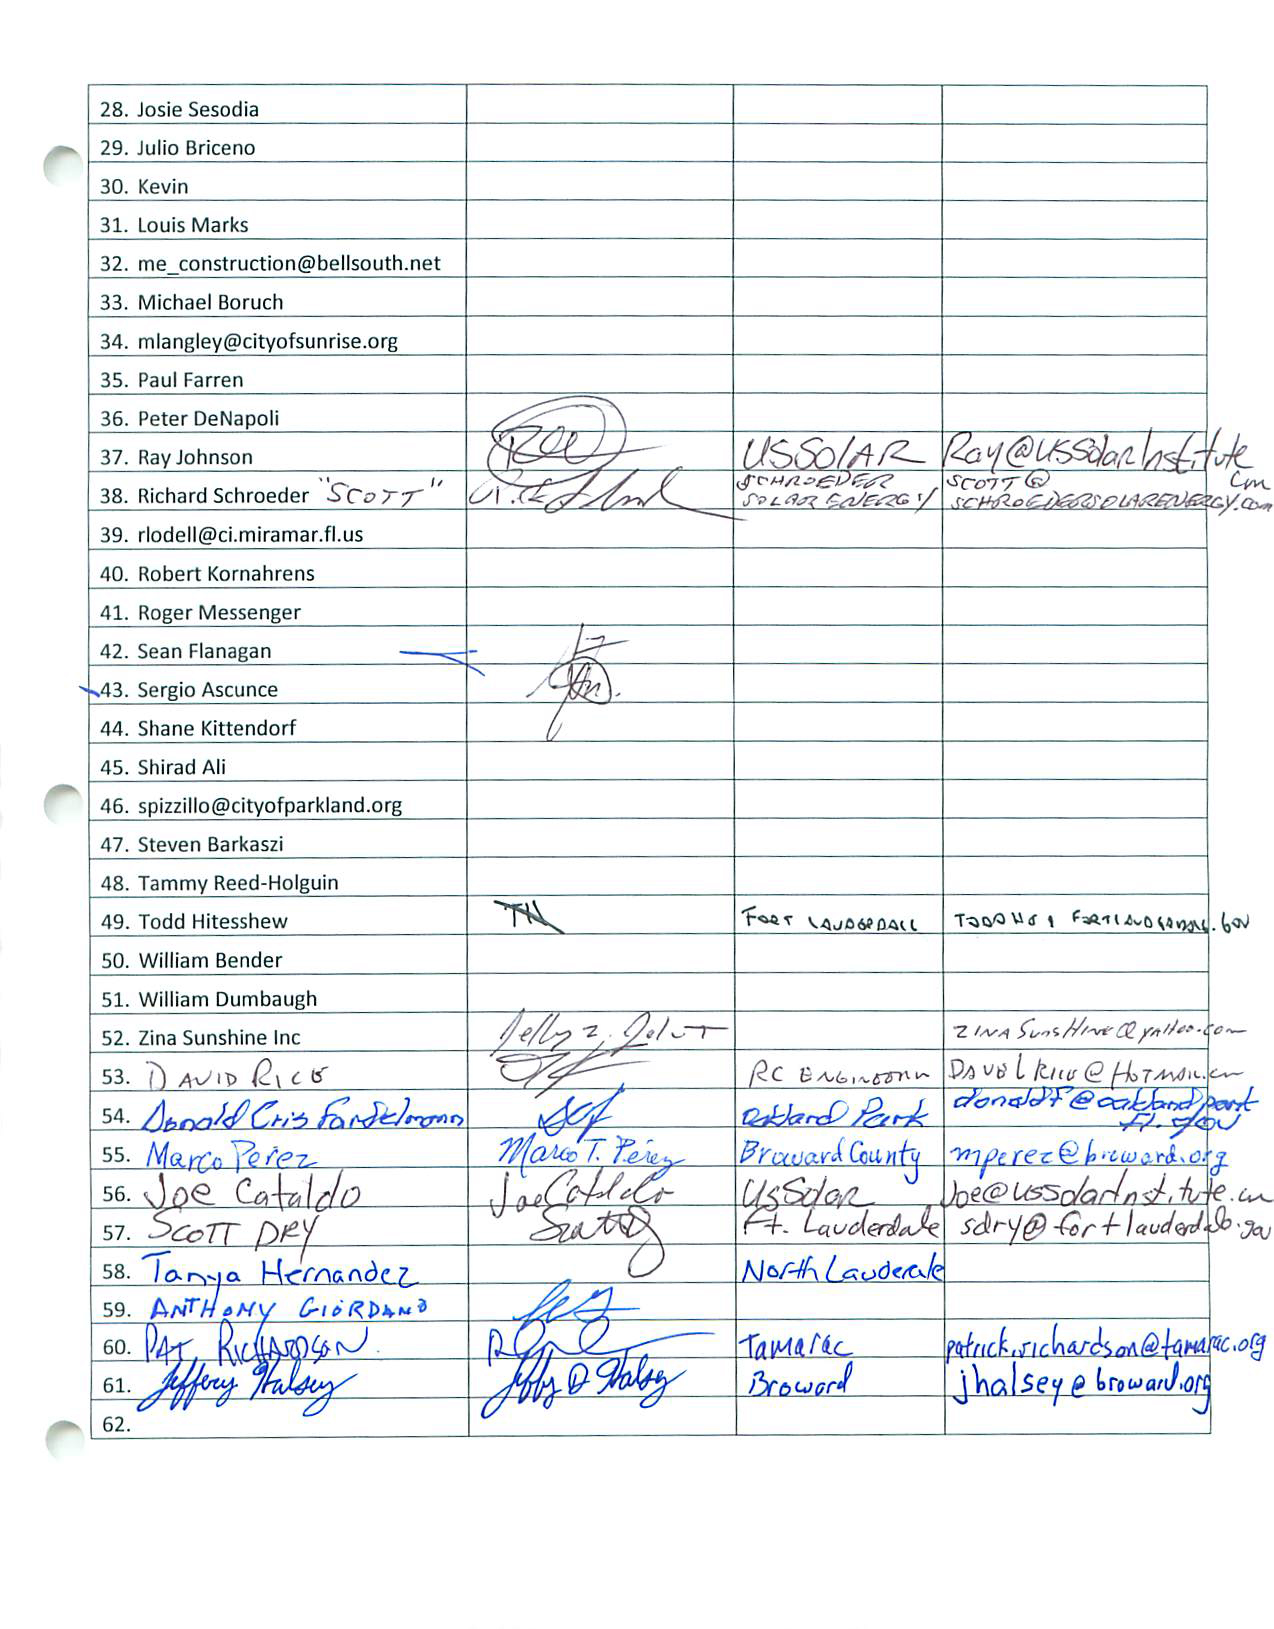 28. Josie Sesodia
29. Julio Briceno
30. Kevin
31. Louis Marks
32. me_construction@bellsouth.net
33. Michael Boruch
34. mlangley@cityofsunrise.org
35. Paul Farren
36. Peter DeNapoli
37. Ray Johnson USSOLAR Ray@USSolarInstitute
.com
38. Richard Schroeder "SCOTT" SCHROEDER SCOTT@
SOLAR ENERGY SCHROEDERSOLARENERGY.com
39. rlodell@ci.miramar.fl.us
40. Robert Kornahrens
41. Roger Messenger
42. Sean Flanagan
43. Sergio Ascunce
44. Shane Kittendorf
45. Shirad Ali
46. spizzillo@cityofparkland.org
47. Steven Barkaszi
48. Tammy Reed-Holguin
49. Todd Hitesshew TH FORT LAUDERDALE
50. William Bender
51. William Dumbaugh
52. Zina Sunshine Inc ZINASunsHine@yahoo.com
53. DAVID RICE RC ENGINEERING
54. Donald Cris Oakland Park donaldf@oaklandpark
fl.gov
55. Marco Perez Marco T. Pérez Broward County mperez@broward.org
56. Joe Cataldo Joe Cataldo USSolar Joe@ussolarInstitute.com
57. SCOTT DRY Ft. Lauderdale sdry@fortlauderdale.gov
58. Tanya Hernandez North Lauderale
59. ANTHONY GIORDANO
60. PAT RICHARDSON Tamarac patrick.richardson@tamarac.org
61. Jeffery Halsey Jeffery D Halsey Broward jhalsey@broward.org
62.